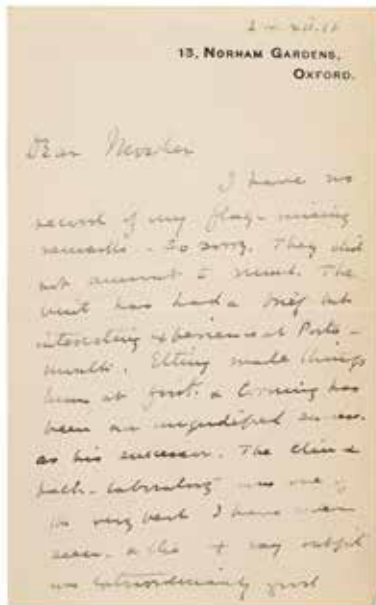 13, NORHAM GARDENS,
OXFORD.
Dear Mosher
I have no
record of my flag-raising
remarks - so sorry. They did
not amount to much. The
unit has had a brief but
interesting experience at Ports-
mouth. Elting made things
hum at first. & Corning has
been an unqualified success.
as his successor. The clin &
path. laboratory was one of
the very best I have ever
seen. & the X ray outfit
was extraordinarily good